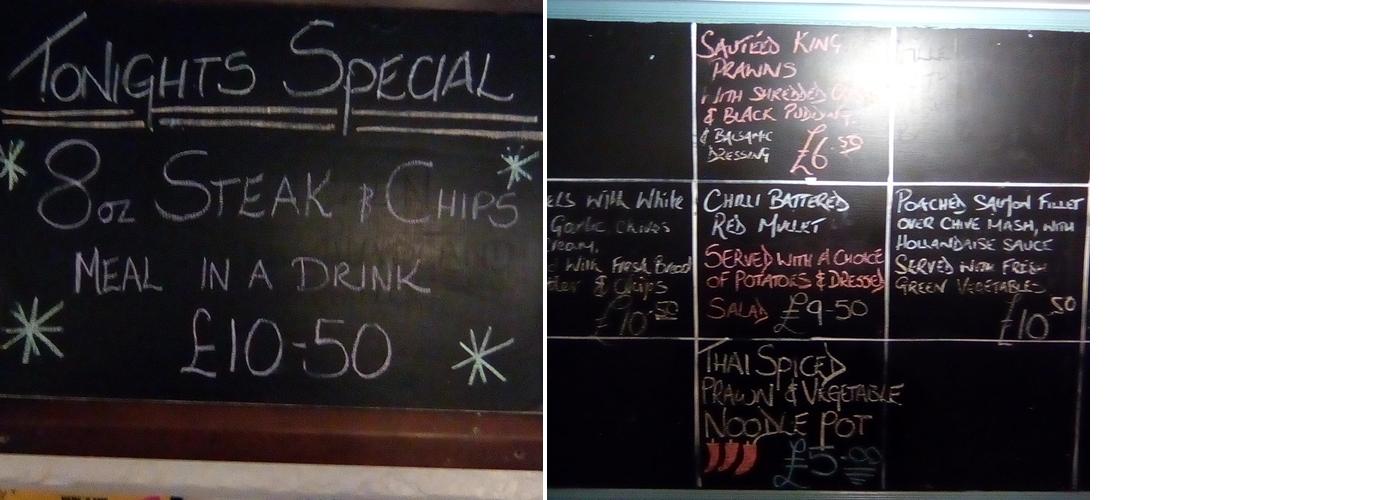 TONIGHTS SPECIAL
8oz STEAK & CHIPS
MEAL IN A DRINK
£10-50
SAUTÉED KING
PRAWNS
WITH SHREDDED
& BLACK PUDDING.
& BALSAMIC
DRESSING £6.50
With White
Garlic Chives
With Fresh Bread
& Chips
£10.50
CHILLI BATTERED
RED MULLET
SERVED WITH A CHOICE
OF POTATOES & DRESSED
SALAD £9-50
POACHED SALMON FILLET
OVER CHIVE MASH, WITH
HOLLANDAISE SAUCE
SERVED WITH FRESH
GREEN VEGETABLES
£10.50
THAI SPICED
PRAWN & VEGETABLE
NOODLE POT
£5.00